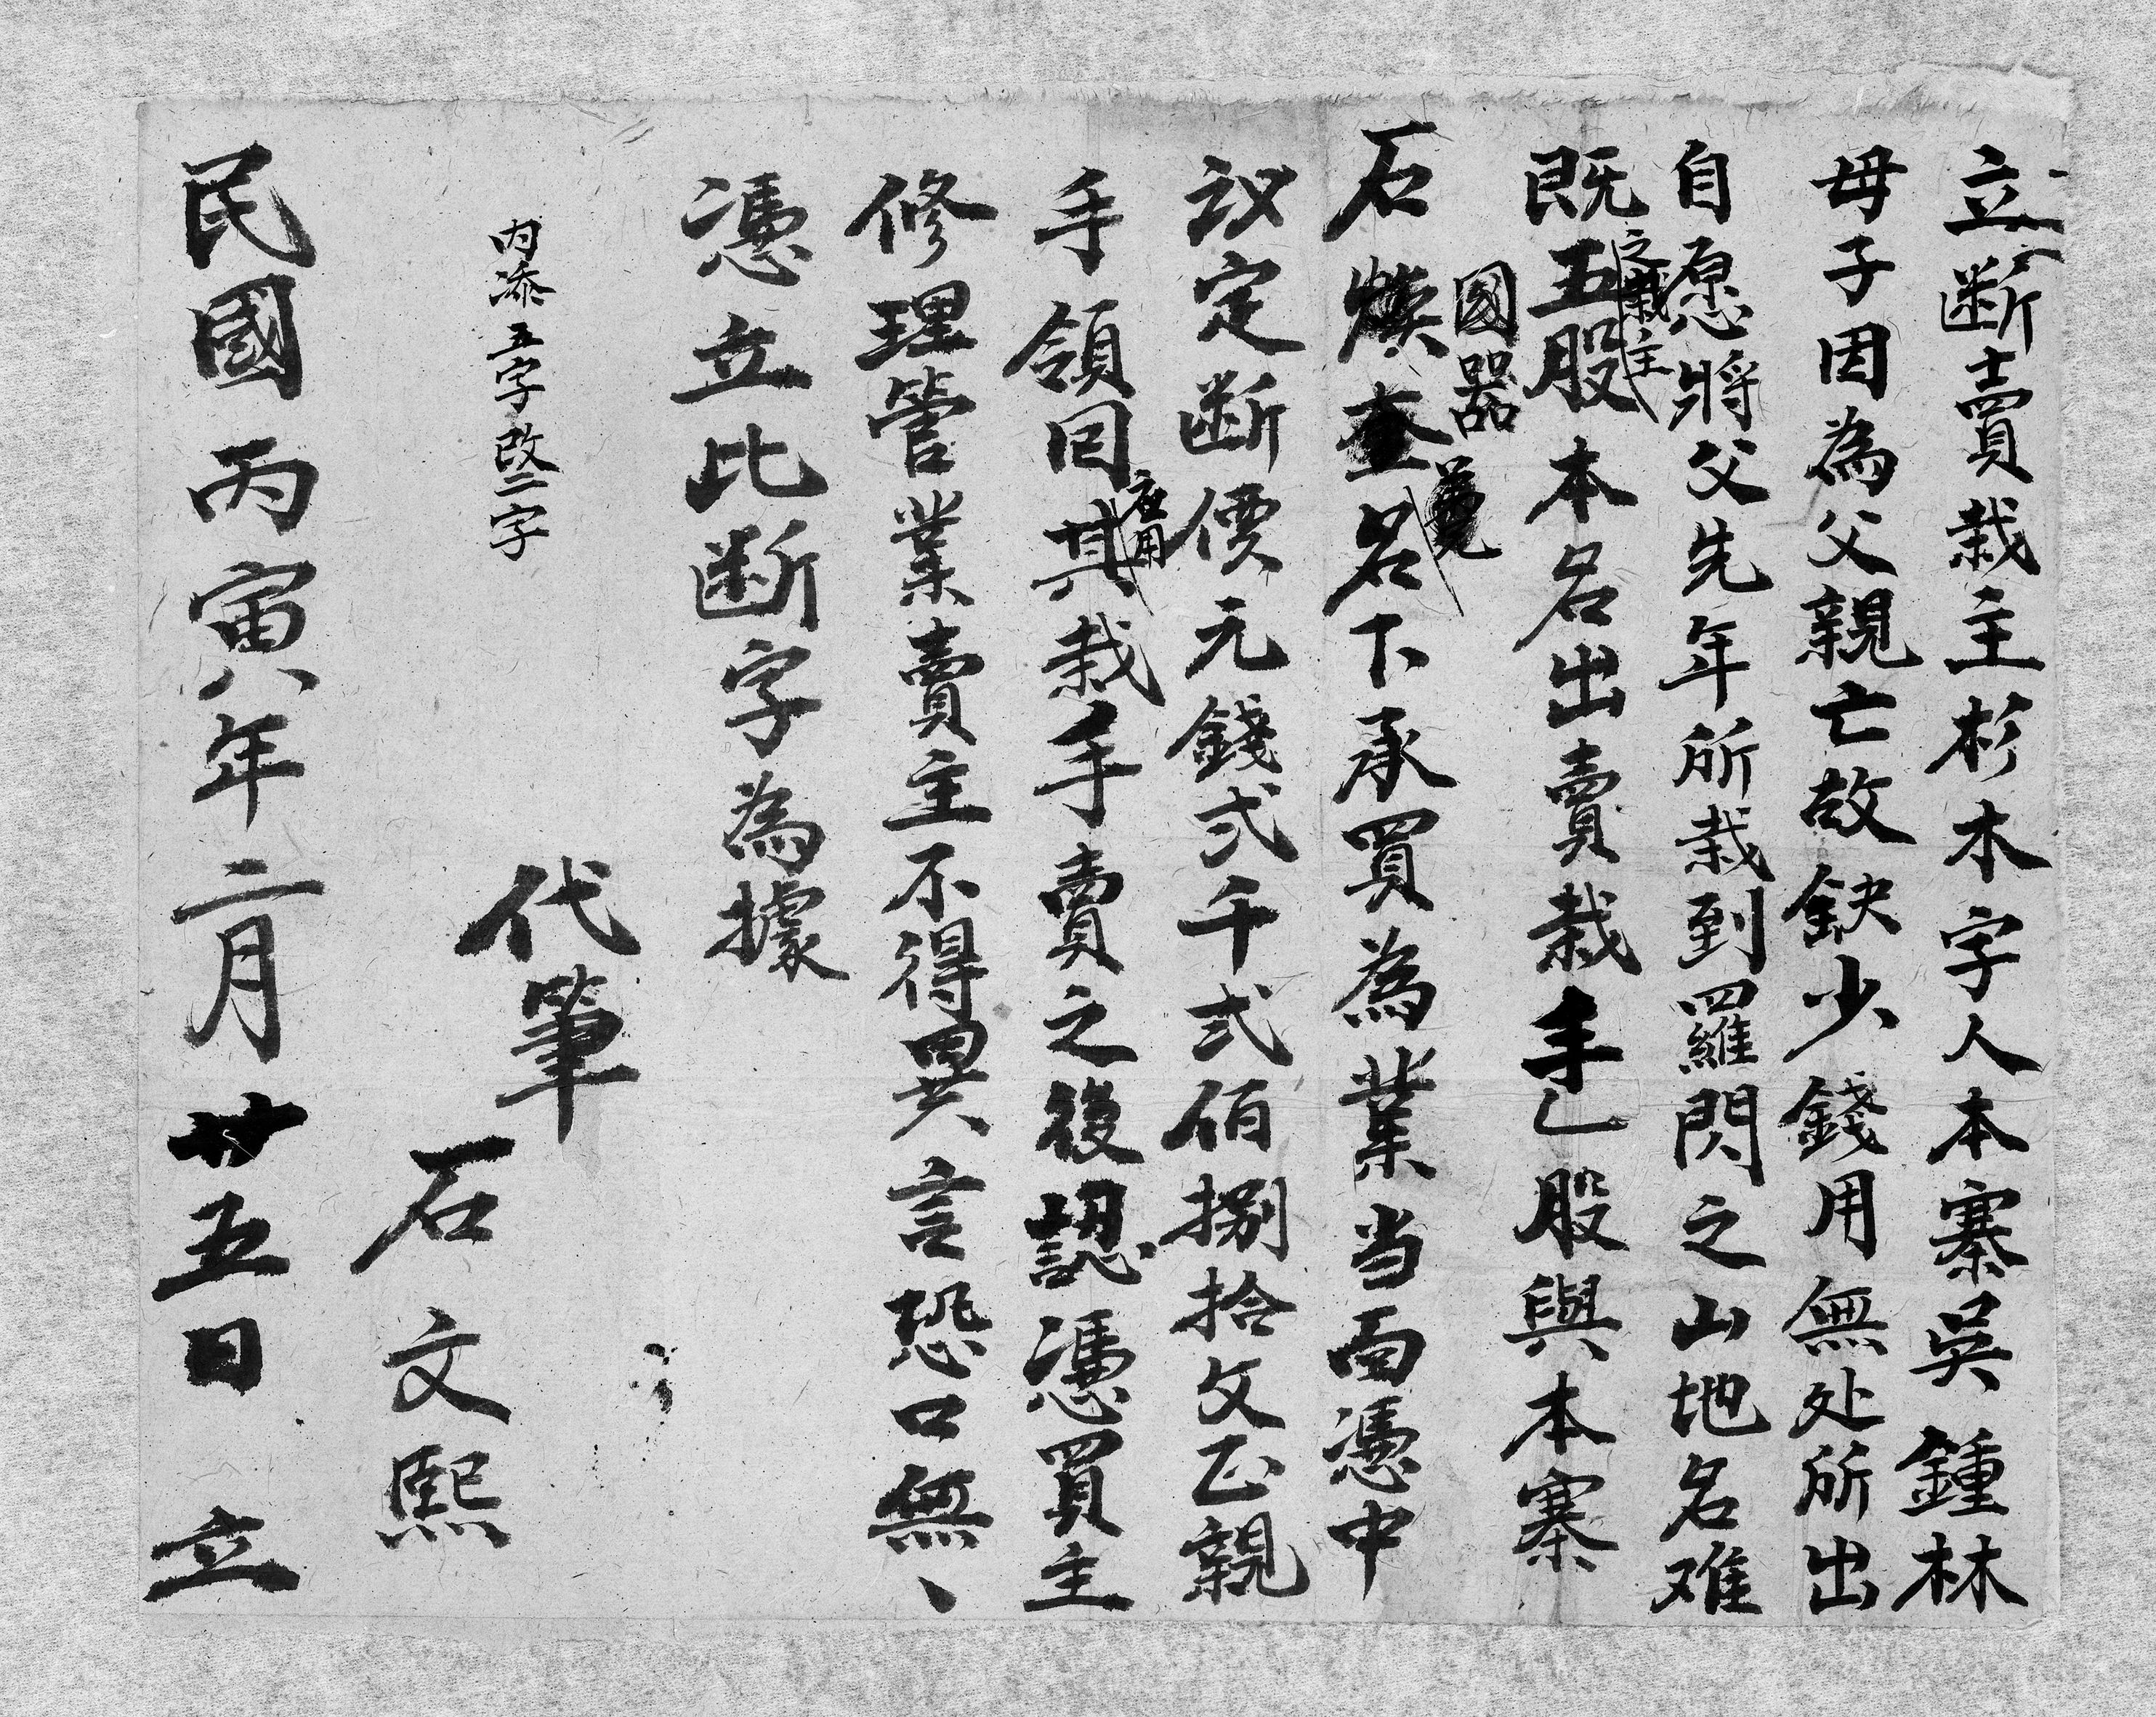 立断賣栽主杉木字人本寨吳鍾林
母子因為父親亡故缺少錢用無处所出
自愿將父先年所栽到羅閃之山地名难
之栽主
既五股本名出賣栽手乙股與本寨
國器
石名下承買為業当面憑中
議定断價元錢弍千弍佰捌拾文正親
應用
手領回其栽手賣之後認憑買主
修理管業賣主不得異言恐口無、
憑立比断字為據
內添五字改二字
代筆
石文熙
民國丙寅年二月廿五日立